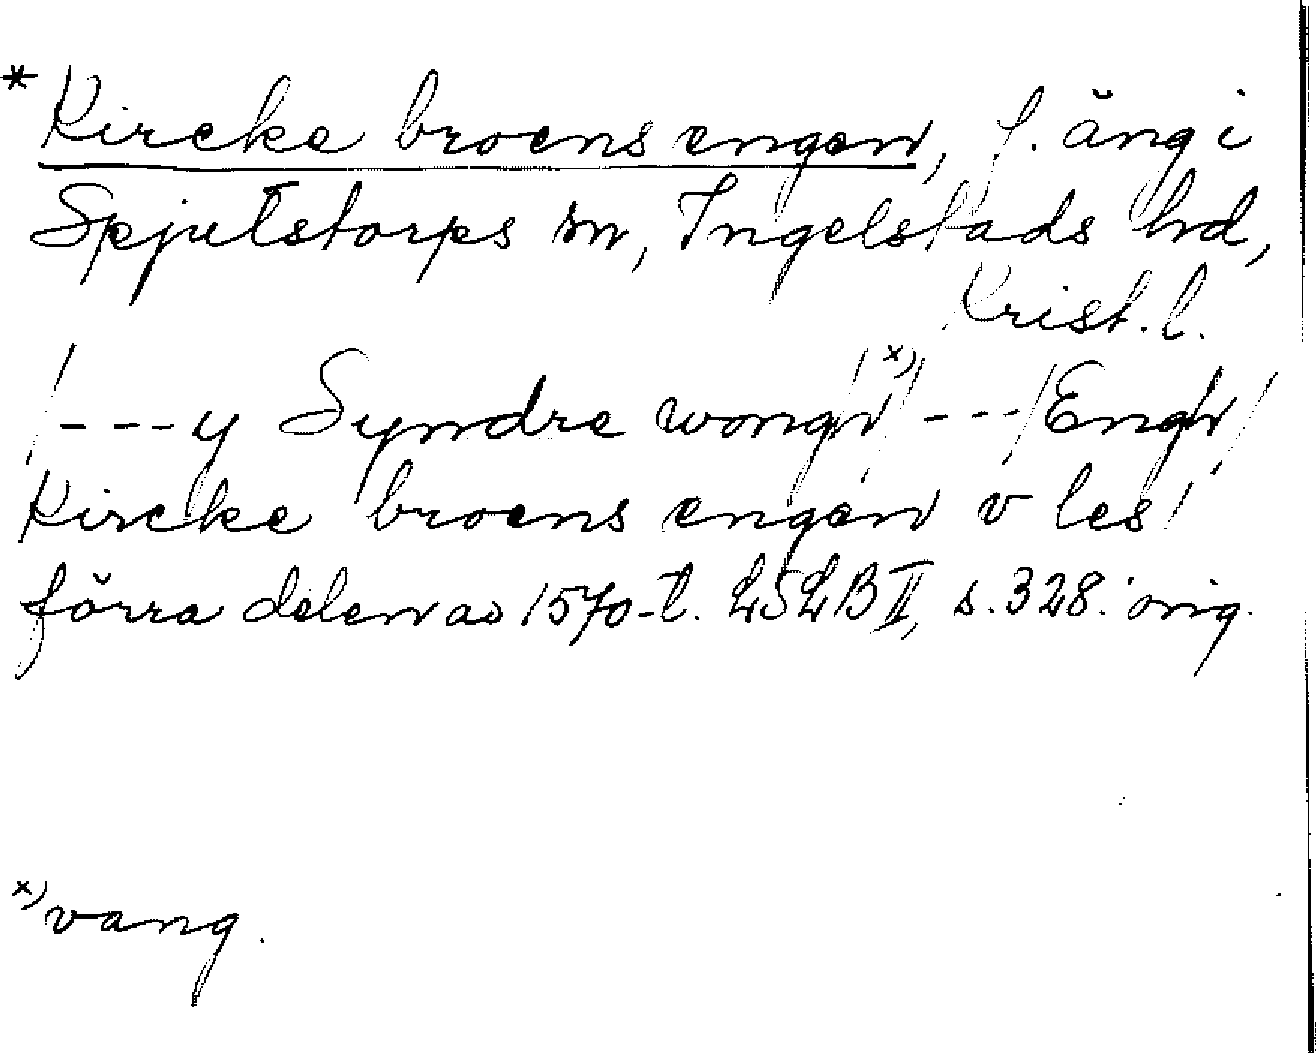 * Kircke broens engen, f. äng i
Spjutstorps sn, Ingelstads hd,
Krist. l.
/---y Syndre wong/n/ x) /---/Eng/n/
Kircke broens engen v les/
förra delen av 1570-t. LSLB II, s. 328. orig.
x) vang.